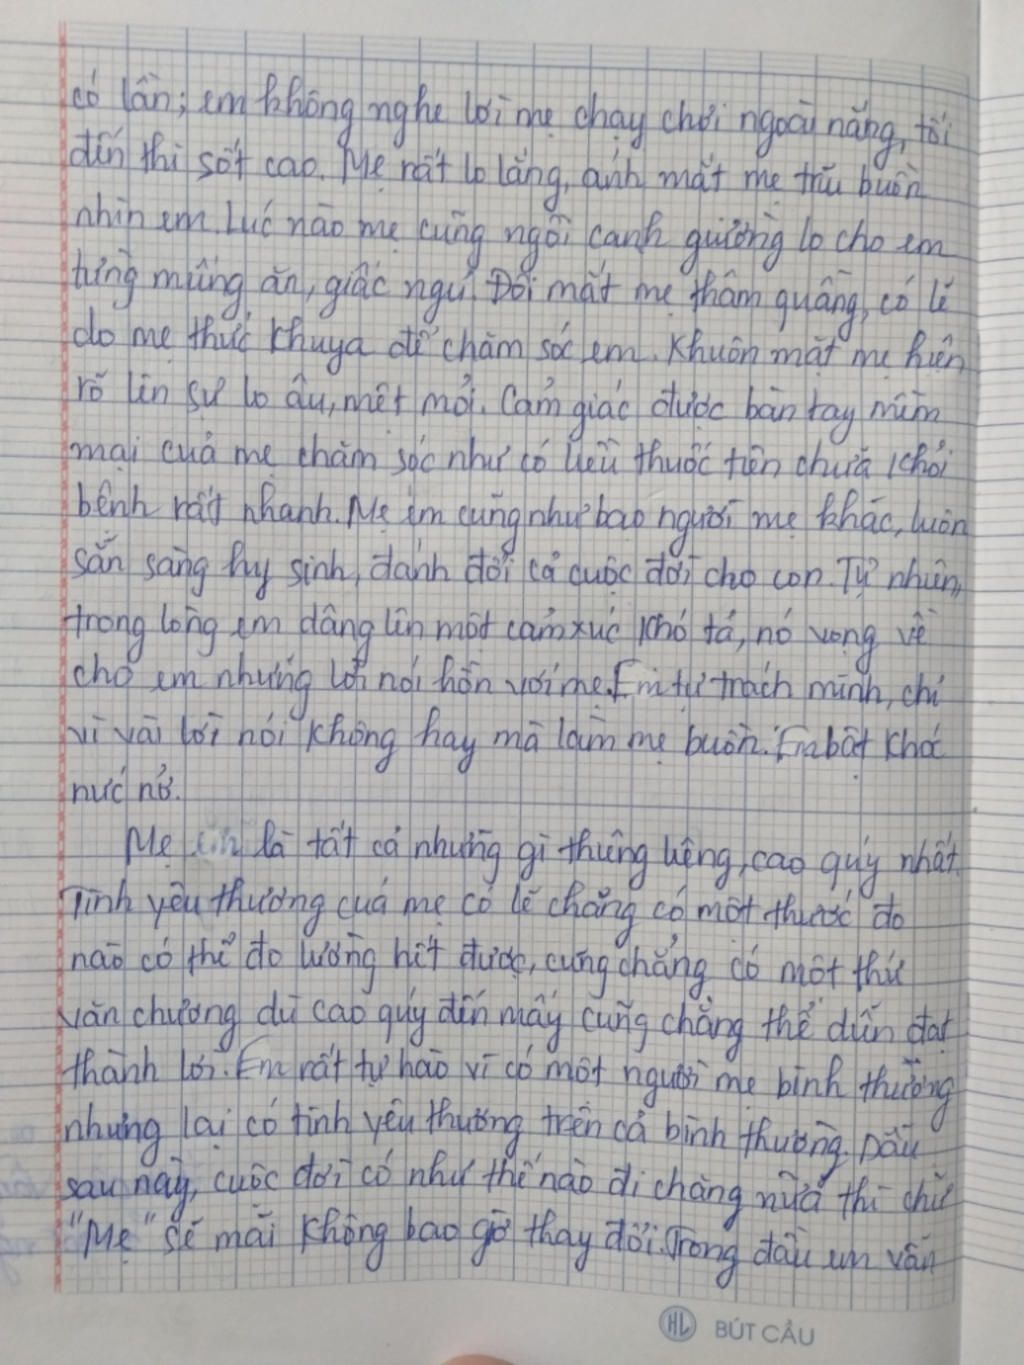 có lần; em không nghe lời mẹ chạy chơi ngoài nắng, tối
đến thì sốt cao. Mẹ rất lo lắng, ánh mắt mẹ trĩu buồn
nhìn em. Lúc nào mẹ cũng ngồi canh giường lo cho em
từng miếng ăn, giấc ngủ. Đôi mắt mẹ thâm quầng, có lẽ
do mẹ thức khuya để chăm sóc em. Khuôn mặt mẹ hiện
rõ lên sự lo âu, mệt mỏi. Cảm giác được bàn tay mềm
mại của mẹ chăm sóc như có liều thuốc tiên chữa khỏi
bệnh rất nhanh. Mẹ em cũng như bao người mẹ khác, luôn
sẵn sàng hy sinh, đánh đổi cả cuộc đời cho con. Tự nhiên,
trong lòng em dâng lên một cảm xúc khó tả, nó vọng về
cho em những lời nói hỗn với mẹ. Em tự trách mình, chỉ
vì vài lời nói không hay mà làm mẹ buồn. Em bật khóc
nức nở.
Mẹ em là tất cả những gì thiêng liêng, cao quý nhất.
Tình yêu thương của mẹ có lẽ chẳng có một thước đo
nào có thể đo lường hết được, cũng chẳng có một thứ
văn chương dù cao quý đến mấy cũng chẳng thể diễn đạt
thành lời. Em rất tự hào vì có một người mẹ bình thường
nhưng lại có tình yêu thương trên cả bình thường. Dẫu
sau này, cuộc đời có như thế nào đi chăng nữa thì chữ
"Mẹ" sẽ mãi không bao giờ thay đổi. Trong đầu em vẫn
HL BÚT CẦU